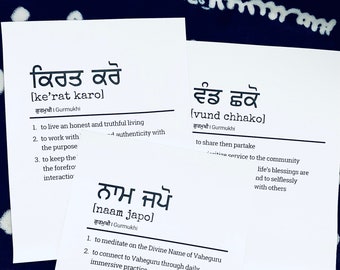 ਕਿਰਤ ਕਰੋ
[ke'rat karo]
ਗੁਰਮੁਖੀ | Gurmukhi
1. to live an honest and truthful living
2. to work with and authenticity with
the purpose
3. to keep the
the forefro
interactio
ਵੰਡ ਛਕੋ
[vund chhako]
ਗੁਰਮੁਖੀ | Gurmukhi
to share then partake
service to the community
life's blessings are
and to selflessly
with others
ਨਾਮ ਜਪੋ
[naam japo]
ਗੁਰਮੁਖੀ | Gurmukhi
1. to meditate on the Divine Name of Vaheguru
2. to connect to Vaheguru through daily
immersive practice